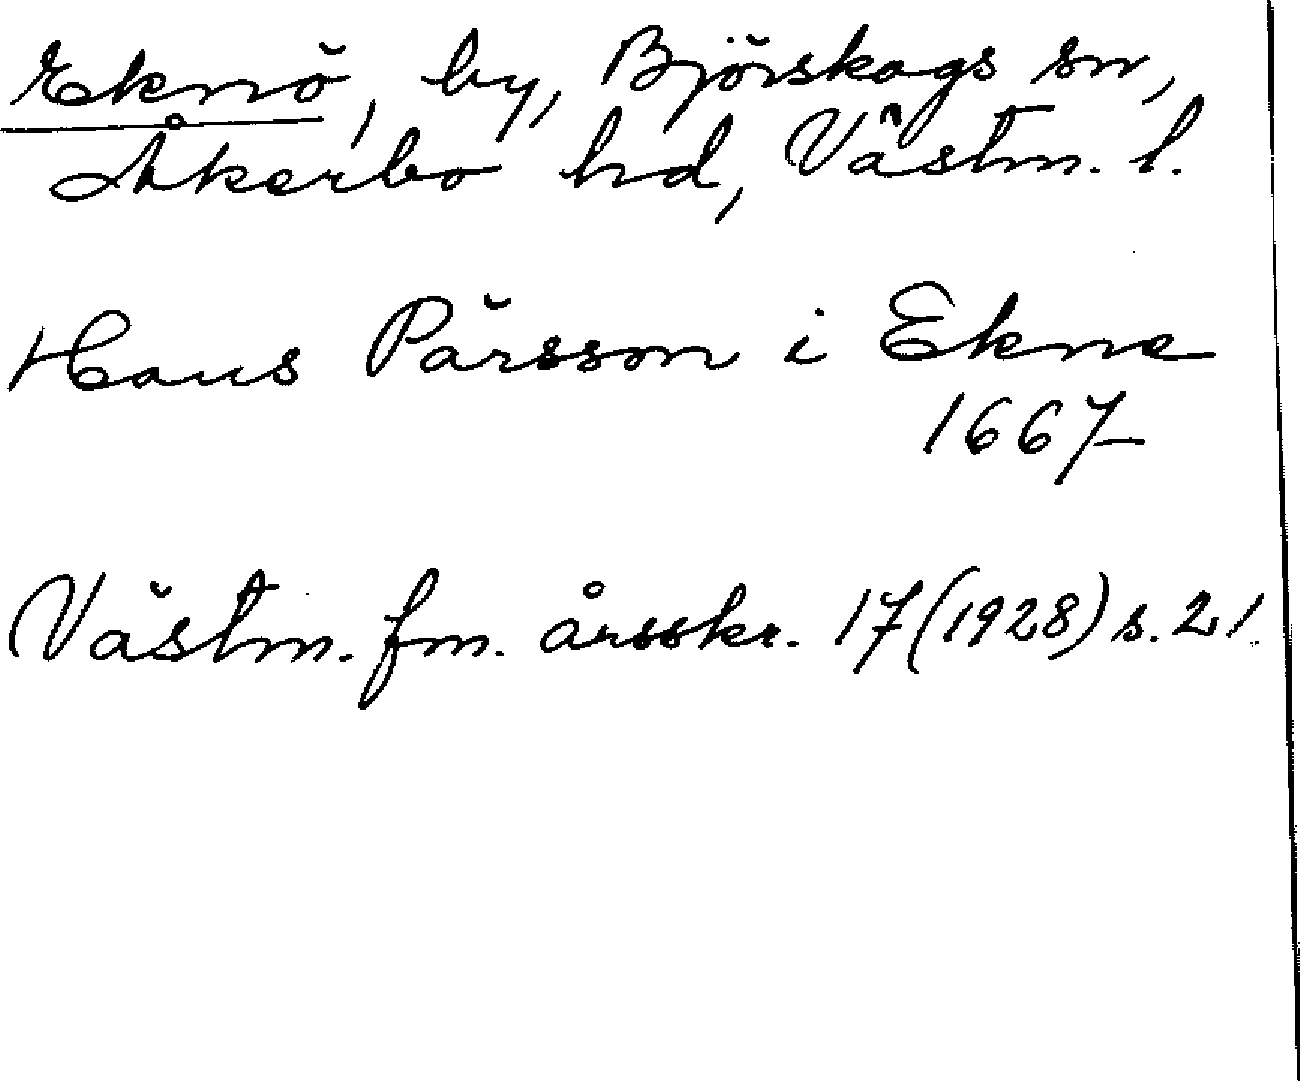 Eknö, by, Björskogs sn,
Åkerbo hd, Västm. l.
Hans Pärsson i Ekne
1667
Västm. fm. årsskr. 17 (1928) s. 21.